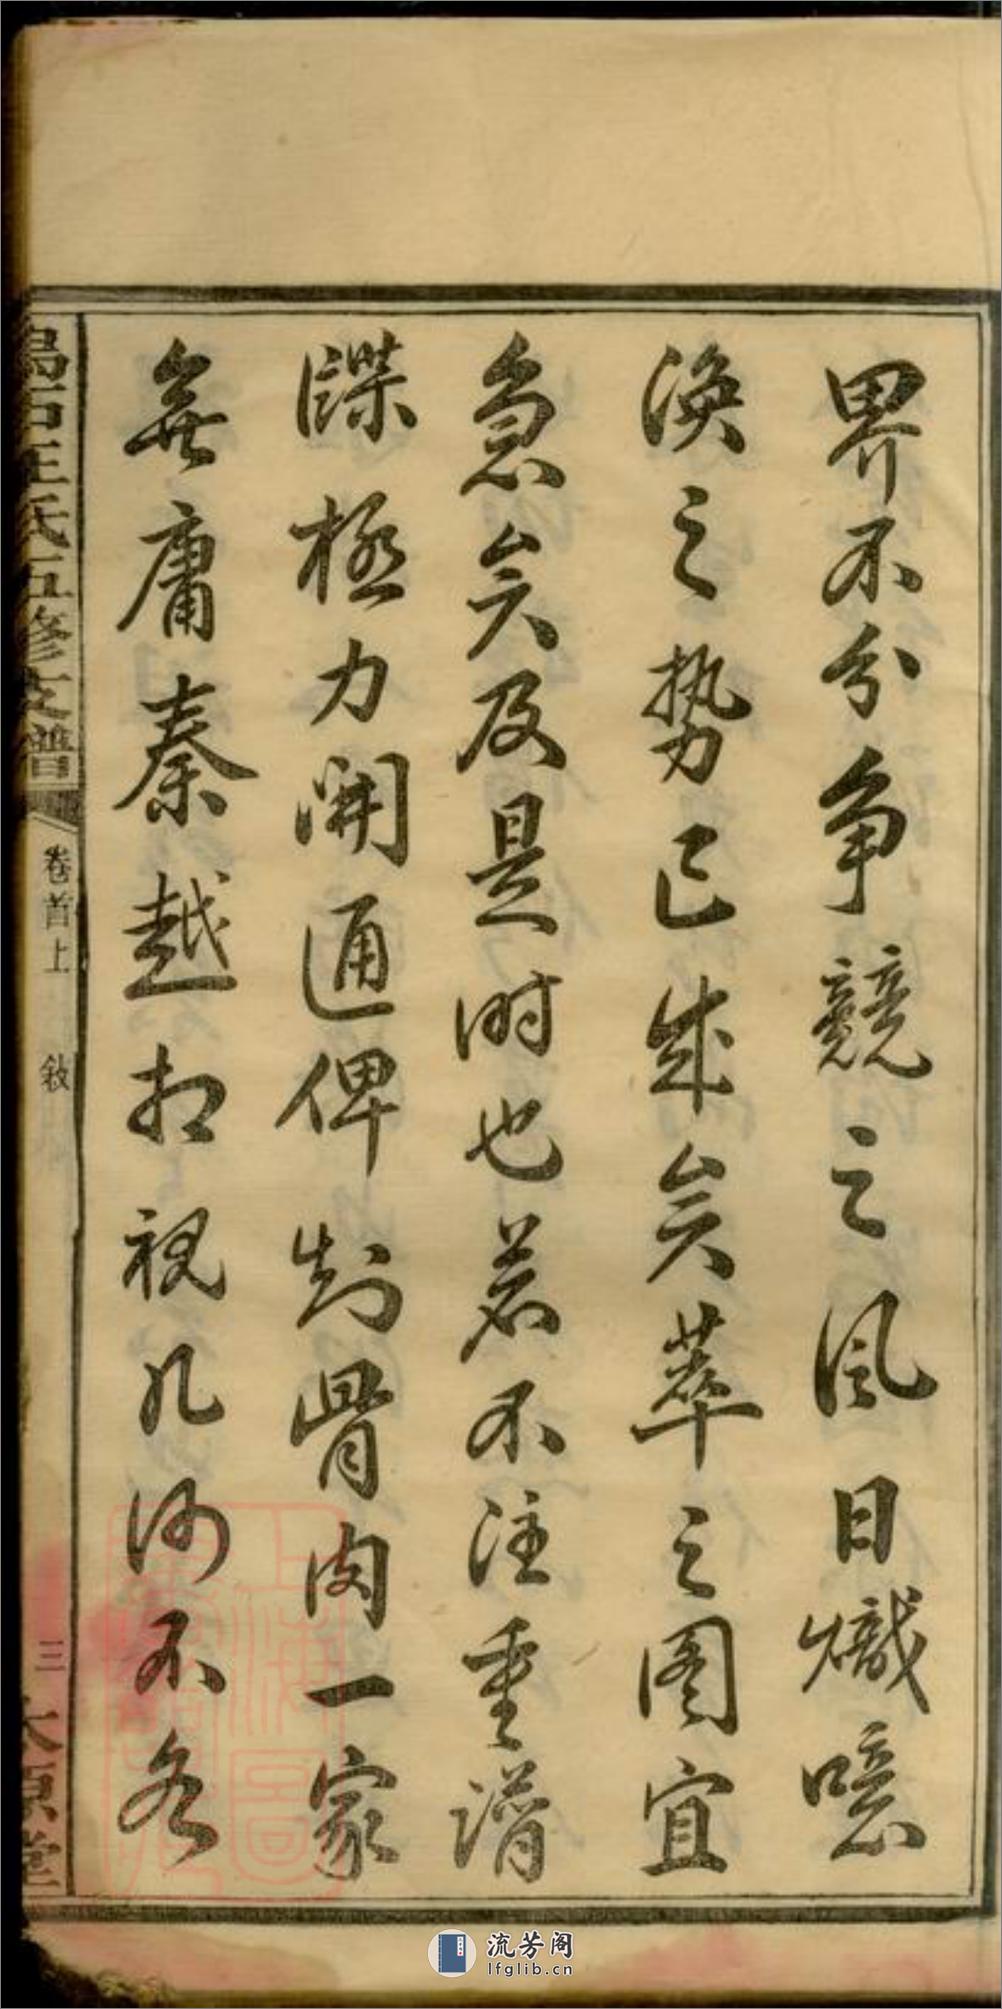 界不分爭競之風日熾噫
渙之勢已成矣萃之圖宜
急矣及是时也若不注重譜
牒極力開通俾
骨肉一家
無庸秦越相視凡
不
石王氏五修支譜
卷首上
敘
三
太原堂
上海圖
流芳阁
lfglib.cn